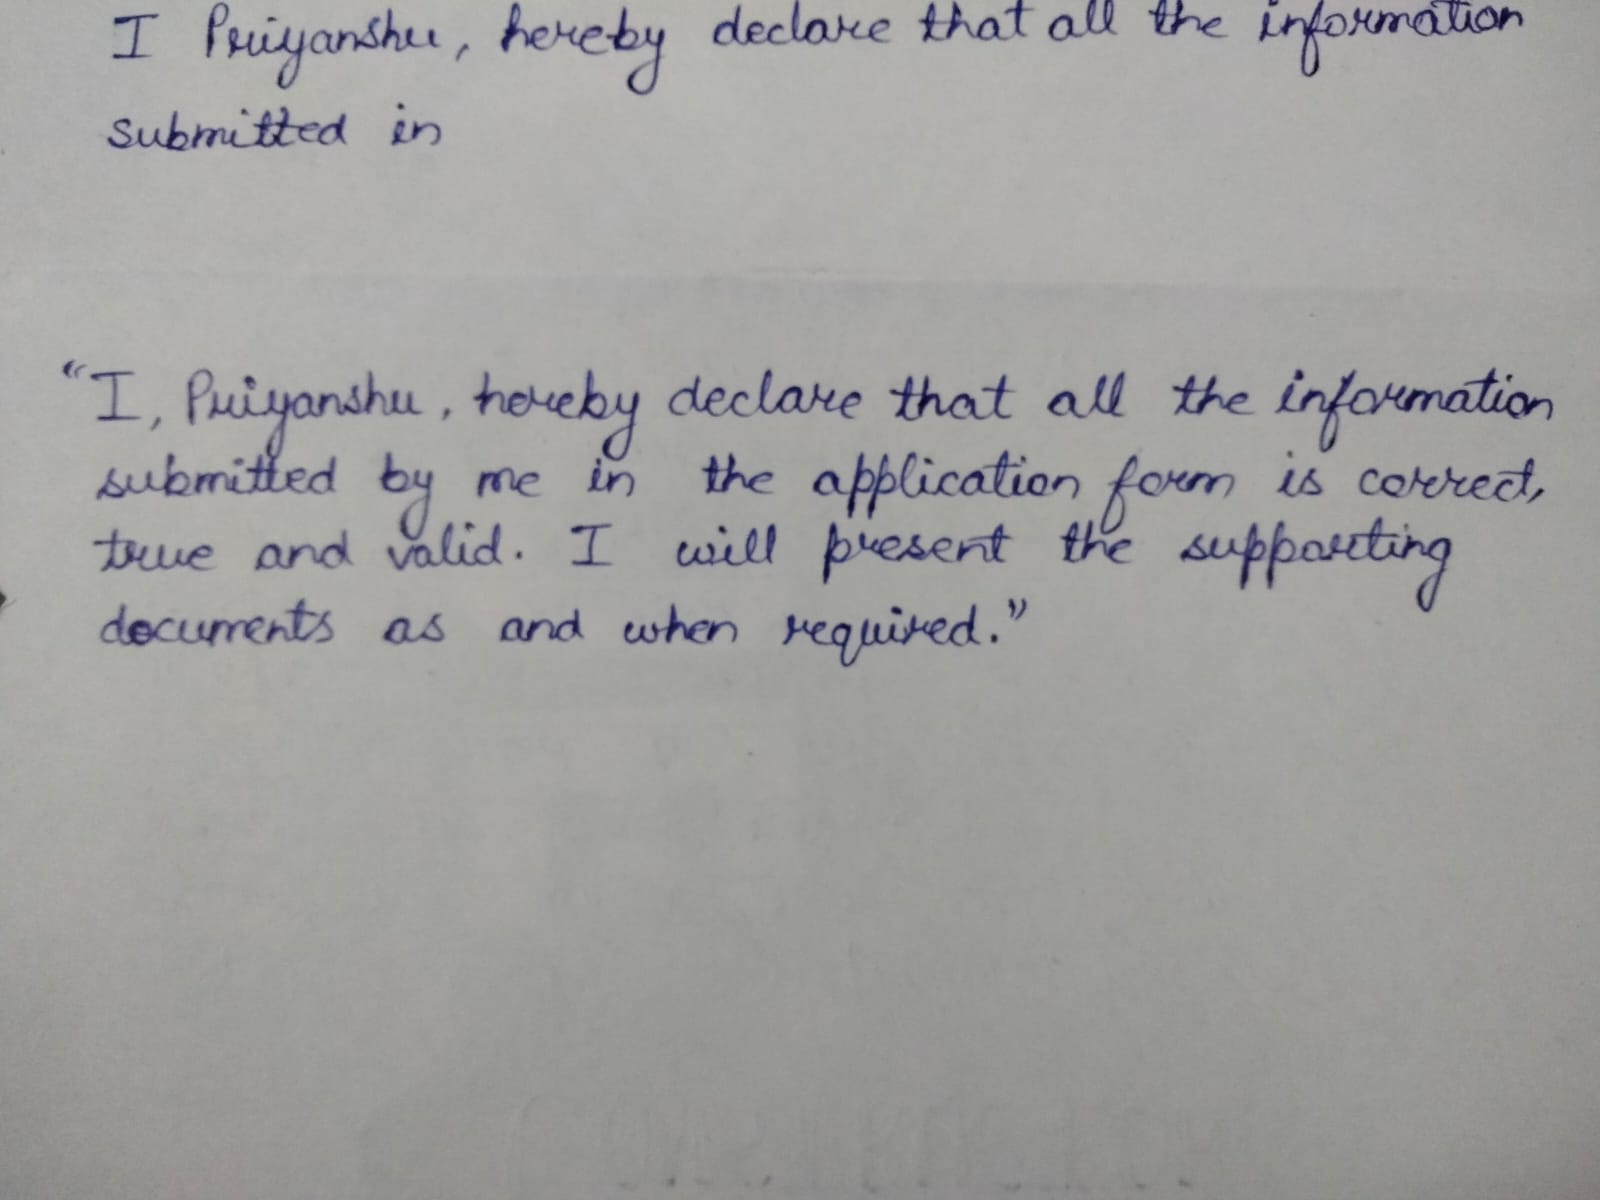 I Priyanshu, hereby declare that all the information
submitted in
“I, Priyanshu, hereby declare that all the information
submitted by me in the application form is correct,
true and valid. I will present the supporting
documents as and when required.”